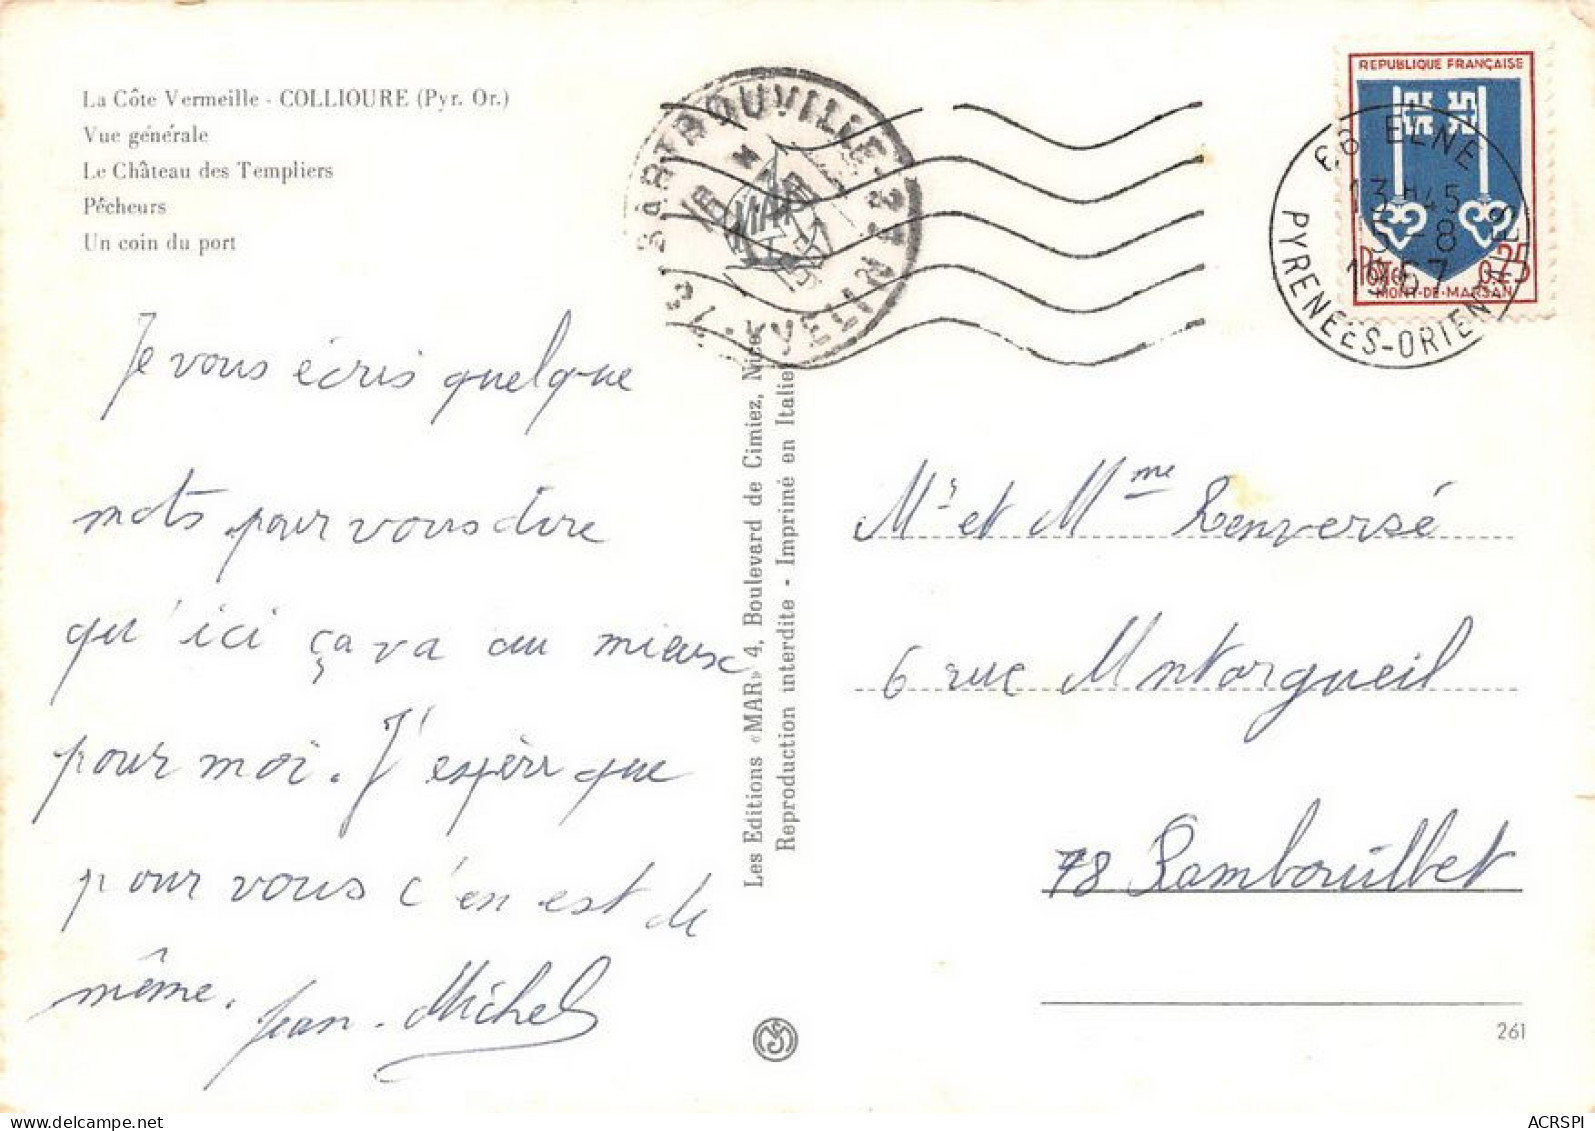 La Côte Vermeille - COLLIOURE (Pyr. Or.)
Vue générale
Le Château des Templiers
Pêcheurs
Un coin du port
Je vous écris quelque
mots pour vous dire
qu'ici ça va au mieux
pour moi. J'espère que
pour vous c'en est de
même. Jean-Michel
Les Editions «MAR» 4, Boulevard de Cimiez, Nice
Reproduction interdite - Imprimé en Italie
MAR
SARTROUVILLE
REPUBLIQUE FRANÇAISE
Postes 0,25
MONT-DE-MARSAN
66 ELNE
13H45
5-8
1967
PYRENEES-ORIENTALES
Mr et Mme Renversé
6 rue Montorgueil
78 Rambouillet
261
ACRSPI